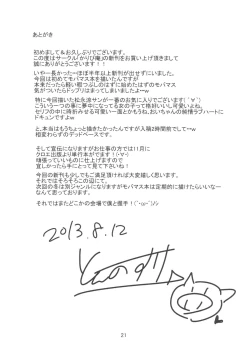 あとがき
初めまして&お久しぶりでございます。
この度はサークル「かりび庵」の新刊をお買い上げ頂きまして
誠にありがとうございます!!
いやー長かった…ほぼ半年以上新刊が出せずにいました。
今回は初めてモバマス本を描いたんですが
本来だったら軽い暇つぶしのはずに始めたはずのモバマス
気がついたらドップリはまってしまいましたよーw
特に今回描いた松永涼サンが一番のお気に入りでございます(*´∀`)
こういう一つの事に夢中になってる女の子って良いですよね、
セリフの中に時折みせる可愛い一面とかもうね、おいちゃんの純情ラブハートに
ドキュンですよw
と、本当はもうちょっと描きたかったんですが入稿2時間前でしてーw
相変わらずのデッドペースです。
そして宣伝になりますがお仕事の方では11月に
クロエ出版より単行本がでます!(・∀・)
頑張っていいものに仕上げますので
宜しかったら手にとって見て下さいね!
今回の新刊も少しでもご満足頂ければ大変嬉しく思います。
それではそろそろこの辺にて。
次回の冬は別ジャンルになりますがモバマス本は定期的に描けたらいいなー
なんて思っております。
それではまたどこかの会場で僕と握手!(`・ω・´)ノシ
2013.8.12
21